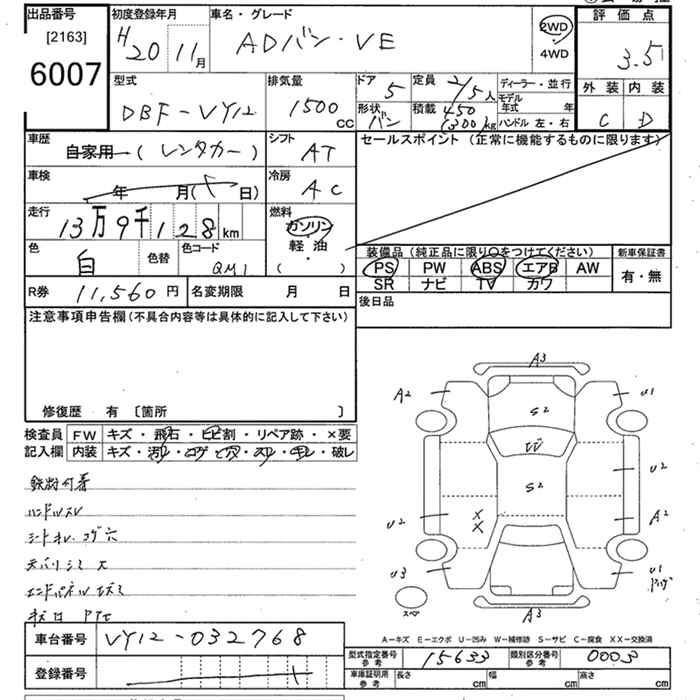 出品番号
[2163]
6007
初度登録年月
H20 11月
車名・グレード
ADバン・VE
2WD
4WD
評価点
3.5
外装 内装
C D
型式
DBF-VY12
排気量
1500
CC
ドア
5
定員
2/5人
形状
バン
積載
450
(300)kg
ディーラー・並行
モデル年式 年
ハンドル 左・右
車歴
自家用(レンタカー)
シフト
AT
セールスポイント(正常に機能するものに限ります)
車検
年 月( 日)
冷房
AC
走行
13万9千128km
燃料
ガソリン
軽・油
( )
色
白
色替
色コード
QM1
装備品(純正品に限り○をつけてください)
PS PW ABS エアB AW
SR ナビ TV カワ
新車保証書
有・無
R券 11,560円
名変期限 月 日
後日品
注意事項申告欄(不具合内容等は具体的に記入して下さい)
修復歴 有 〔箇所 〕
検査員
記入欄
FW キズ・飛石・ヒビ割・リペア跡・×要
内装 キズ・汚レ・コゲ・ヒ穴・スレ・キレ・破レ
ハンドルスレ
A3
A2
U1
S2
W
U2
S2
U2
X
X
A2
U3
U1
スペア
A3
A-キズ E-エクボ U-凹み W-補修跡 S-サビ C-腐食 XX-交換済
車台番号
VY12-032768
登録番号
型式指定番号
参考
15633
類別区分番号
参考
0003
車庫証明用
参考
長さ cm 幅 cm 高さ cm